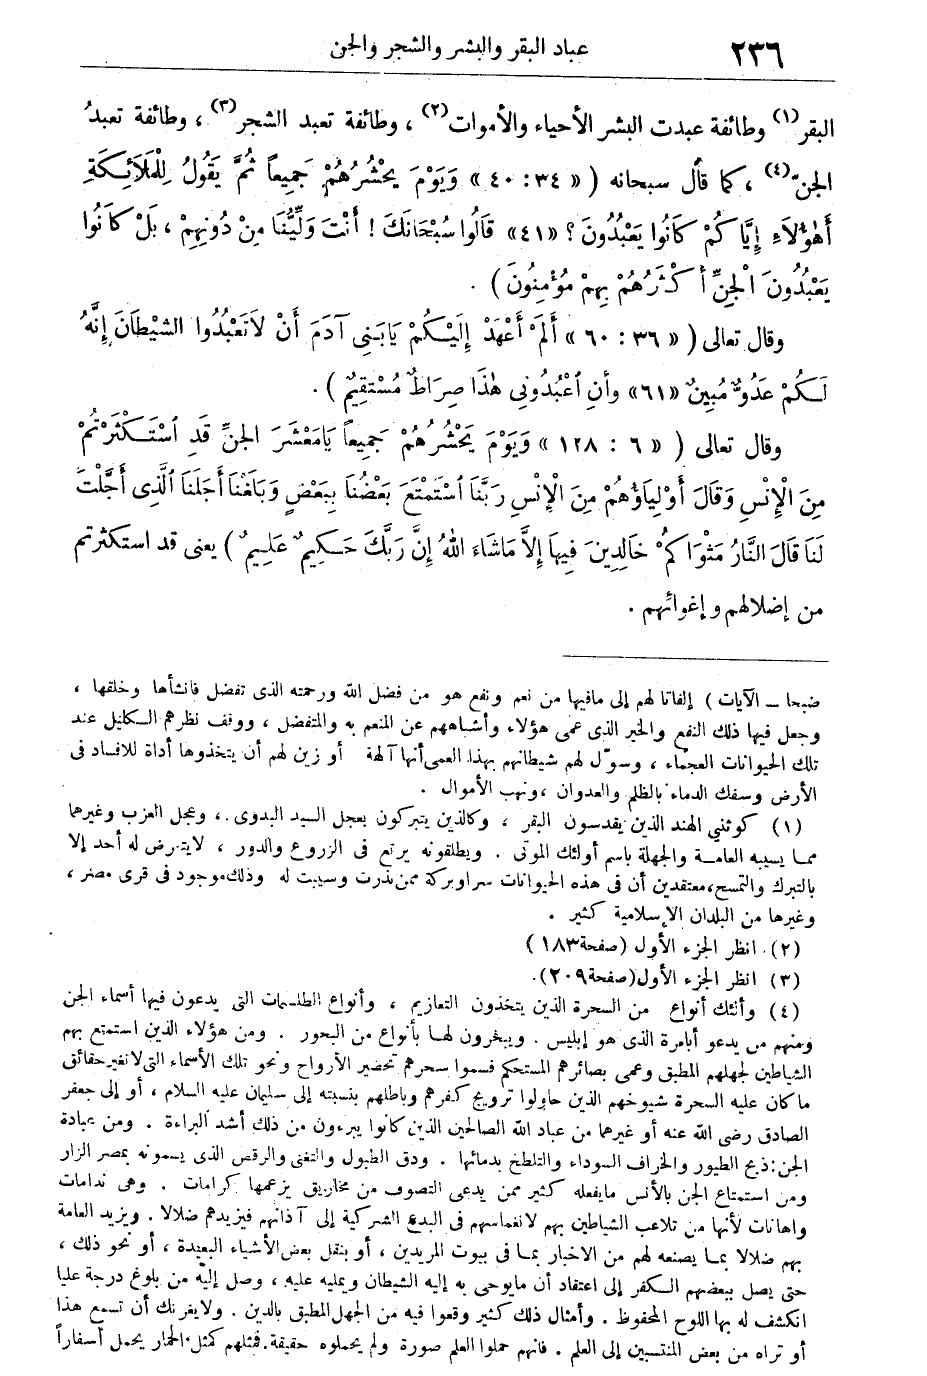 ٢٣٦ عباد البقر والبشر والشجر والجن
البقر(١) وطائفة عبدت البشر الأحياء والأموات(٢) ، وطائفة تعبد الشجر(٣) ، وطائفة تعبدُ
الجن(٤) ، كما قال سبحانه ( « ٣٤ : ٤٠ » وَيَوْمَ يَحْشُرُهُمْ جَمِيعاً ثُمَّ يَقُولُ لِلْمَلَائِكَةِ
أَهٰؤُلَاءِ إِيَّاكُمْ كَانُوا يَعْبُدُونَ ؟ «٤١» قَالُوا سُبْحَانَكَ ! أَنْتَ وَلِيُّنَا مِنْ دُونِهِمْ ، بَلْ كَانُوا
يَعْبُدُونَ الْجِنَّ أَكْثَرُهُمْ بِهِمْ مُؤْمِنُونَ ) .
وقال تعالى ( « ٣٦ : ٦٠ » أَلَمْ أَعْهَدْ إِلَيْكُمْ يَابَنِي آدَمَ أَنْ لَاتَعْبُدُوا الشيْطَانَ إِنَّهُ
لَكُمْ عَدُوٌّ مُبِينٌ «٦١» وأنِ اعْبُدُونِي هٰذَا صِرَاطٌ مُسْتَقِيمٌ ) .
وقال تعالى ( « ٦ : ١٢٨ » وَيَوْمَ يَحْشُرُهُمْ جَمِيعاً يَامَعْشَرَ الجِنِّ قَدِ اسْتَكْثَرْتُمْ
مِنَ الْإِنْسِ وَقَالَ أَوْلِيَاؤُهُمْ مِنَ الْإِنْسِ رَبَّنَا اسْتَمْتَعَ بَعْضُنَا بِبَعْضٍ وَبَلَغْنَا أَجَلَنَا الَّذِي أَجَّلْتَ
لَنَا قَالَ النَّارُ مَثْوَاكُمْ خَالِدِينَ فِيهَا إِلاَّ مَاشَاءَ اللهُ إِنَّ رَبَّكَ حَكِيمٌ عَلِيمٌ ) يعنى قد استكثرتم
من إضلالهم وإغوائهم .
ضبحا ـ الآيات ) إلفاتا لهم إلى مافيها من نعم ونفع هو من فضل الله ورحمته الذى تفضل فأنشأها وخلقها ،
وجعل فيها ذلك النفع والخير الذى عمى هؤلاء وأشباههم عن المنعم به والمتفضل ، ووقف نظرهم الكليل عند
تلك الحيوانات العجماء ، وسوّل لهم شيطانهم بهذا العمى أنها آلهة أو زين لهم أن يتخذوها أداة للافساد فى
الأرض وسفك الدماء بالظلم والعدوان ، ونهب الأموال .
(١) كوثنيي الهند الذين يقدسون البقر ، وكالذين يتبركون بعجل السيد البدوى ، وعجل العزب وغيرهما
مما يسيبه العامة والجهلة باسم أولئك الموتى . ويطلقونه يرتع فى الزروع والدور ، لايتعرض له أحد إلا
بالتبرك والتمسح، معتقدين أن فى هذه الحيوانات سرا وبركة ممن نذرت وسيبت له وذلك موجود فى قرى مصر ،
وغيرها من البلدان الإسلامية كثير .
(٢) انظر الجزء الأول (صفحة ١٨٣)
(٣) انظر الجزء الأول (صفحة ٢٠٩).
(٤) وأنثك أنواع من السحرة الذين يتخذون التعازيم ، وأنواع الطلسمات التى يدعون فيها أسماء الجن
ومنهم من يدعو أبامرة الذى هو إبليس . ويبخرون لها بأنواع من البخور . ومن هؤلاء الذين استمتع بهم
الشياطين لجهلهم المطبق وعمى بصائرهم المستحكم فسموا سحرهم تحضير الأرواح ونحو تلك الأسماء التى لاتغير حقائق
ما كان عليه السحرة شيوخهم الذين حاولوا ترويج كفرهم وباطلهم بنسبته إلى سليمان عليه السلام ، أو إلى جعفر
الصادق رضى الله عنه أو غيرهما من عباد الله الصالحين الذين كانوا يبرءون من ذلك أشد البراءة . ومن عبادة
الجن: ذبح الطيور والخراف السوداء والتلطخ بدمائها . ودق الطبول والتغنى والرقص الذى يسمونه بمصر الزار
ومن استمتاع الجن بالأنس مايفعله كثير ممن يدعى التصوف من مخاريق يزعمها كرامات . وهى ندامات
واهانات لأنها من تلاعب الشياطين بهم لانغماسهم فى البدع الشركية إلى آذانهم فيزيدهم ضلالا . ويزيد العامة
بهم ضلالا بما يصنعه لهم من الاخبار بما فى بيوت المريدين ، أو بنقل بعض الأشياء البعيدة ، أو نحو ذلك ،
حتى يصل ببعضهم الكفر إلى اعتقاد أن مايوحى به إليه الشيطان ويمليه عليه ، وصل إليه من بلوغ درجة عليا
انكشف له بها اللوح المحفوظ . وأمثال ذلك كثير وقعوا فيه من الجهل المطبق بالدين . ولايغرنك أن تسمع هذا
أو تراه من بعض المنتسبين إلى العلم . فانهم حملوا العلم صورة ولم يحملوه حقيقة. فمثلهم كمثل الحمار يحمل أسفاراً